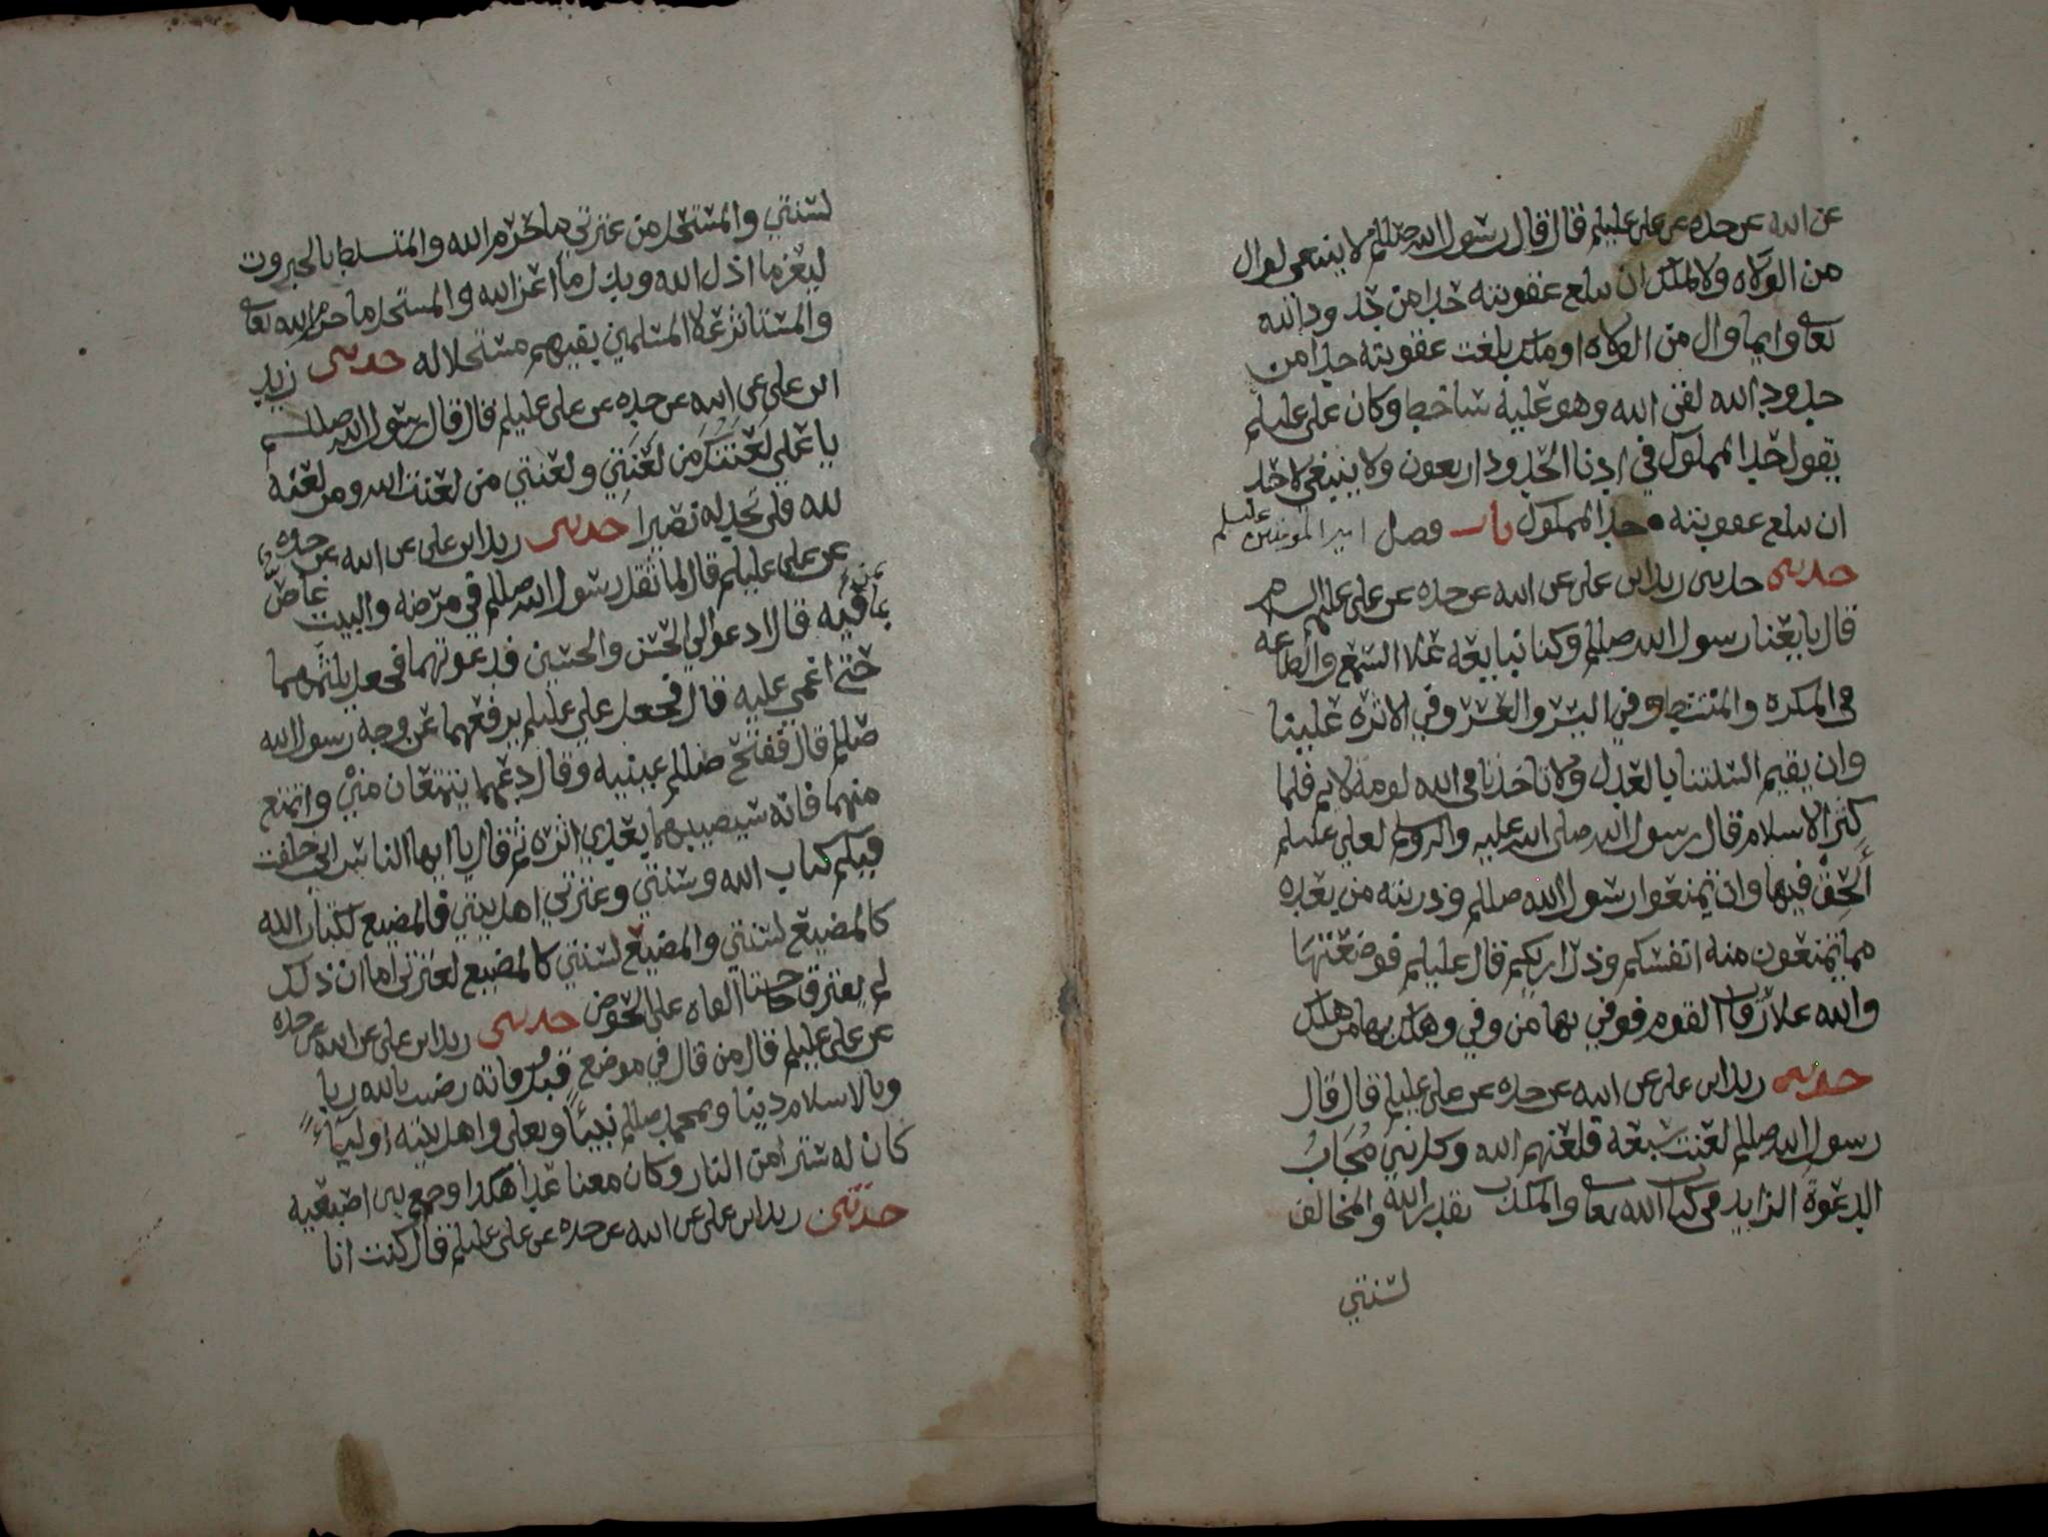 عن ابيه عن جده عن علي عليلم قال قال رسول الله صللم لا ينبغي لوال
من الولاه ولا لملك ان يبلع عقوبته حدا من حدود الله
تعالى وايما وال من الولاه او ملك بلغت عقوبته حدا من
حدود الله لقى الله وهو عليه ساخط وكان علي عليلم
يقول حد المملوك في ادنا الحدود اربعون ولا ينبغي لاحد
ان يبلع عقوبته حد المملوك باب فضل امير المومنين عليلم
حدثني حدثني زيد ابن علي عن ابيه عن جده عن علي عليه السلام
قال بايعنا رسول الله صللم وكنا نبايعه علا السمع والطاعه
في المكره والمنشط وفي اليسر والعسر وفي الاثره علينا
وان يقيم السنتنا بالعدل ولا تاخذنا في الله لومة لايم فلما
كثر الاسلام قال رسول الله صلى الله عليه واله وسلم لعلي عليلم
ألحق فيها وان تمنعوا رسول الله صللم وذريته من بعده
مما تمنعون منه انفسكم وذراريكم قال عليلم فوضعتها
والله علا رقاب القوم فوفي بها من وفي وهلك بها من هلك
حدثني زيد ابن علي عن ابيه عن جده عن علي عليلم قال قال
رسول الله صللم لعنت سبعه فلعنهم الله وكل نبي مُجَابُ
الدعوة الزايد في كتاب الله تعالى والمكذب بقدر الله والمخالف
لسنتي
لسنتي والمستحل من عترتي ما حرم الله والمتسلط بالجبروت
ليعز ما اذل الله ويذل ما اعز الله والمستحل ما حرم الله تعالى
والمستاثر علا المسلمين بفيهم مستحلا له حدثني زيد
ابن علي عن ابيه عن جده عن علي عليلم قال قال رسول الله صللم
يا علي لعنتك من لعنتي ولعنتي من لعنت الله ومن لعنه
لله فلن تجد له نصيرا حدثني زيد ابن علي عن ابيه عن جده
عن علي عليلم قال لما ثقل رسول الله صللم في مرضه والبيت غاص
بمن فيه قال ادعوا لي الحسن والحسين فدعوتهما فجعل يلثمهما
حتى اغمي عليه قال فجعل علي عليلم يرفعهما عن وجه رسول الله
صللم قال ففتح صللم عينيه وقال دعهما يتمتعان مني واتمتع
منهما فانه سيصيبهما بعدي اثره ثم قال يا ايها الناس اني خلفت
فيكم كتاب الله وسنتي وعترتي اهل بيتي فالمضيع لكتاب الله
كالمضيع لسنتي والمضيع لسنتي كالمضيع لعترتي اما ان ذلك
لم يفترقا حتا القاه على الحوض حدثني زيد ابن علي عن ابيه عن جده
عن علي عليلم قال من قال في موضع قبل وفاته رضيت بالله ربا
وبالاسلام دينا وبمحمد صللم نبيئا وبعلي واهل بيته اولياءً
كان له سترا من النار وكان معنا غدا هكذا وجمع بين اصبعيه
حدثني زيد ابن علي عن ابيه عن جده عن علي عليلم قال كنت انا